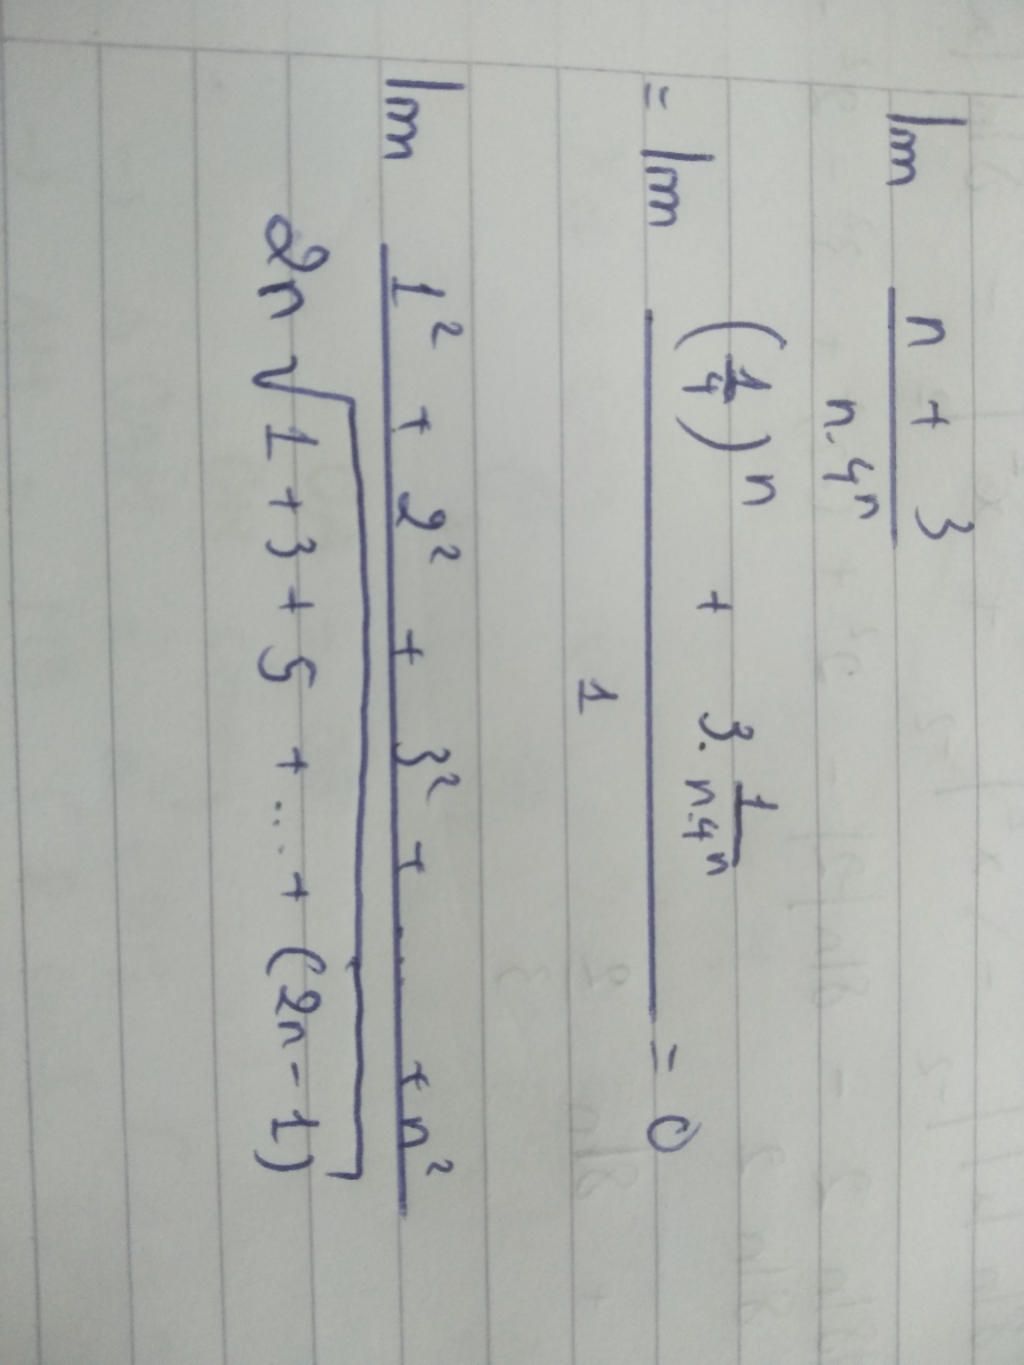 lim n + 3 / n.4ⁿ
= lim (1/4)ⁿ + 3. 1/n.4ⁿ / 1 = 0
lim 1² + 2² + 3² + ... + n² / 2n √1 + 3 + 5 + ... + (2n - 1)